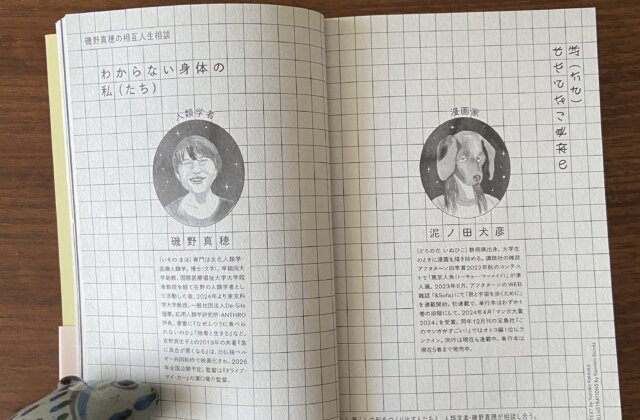 磯野真穂の相互人生相談
わからない身体の
私(たち)
人類学者
磯野真穂
[いその まほ]専門は文化人類学・
医療人類学。博士(文学)。早稲田大
学助教、国際医療福祉大学大学院
准教授を経て在野の人類学者とし
て活動した後、2024年より東京科
学大学教授。一般社団法人De-Silo
理事、応用人類学研究所・ANTHRO
所長。著書に『なぜふつうに食べら
れないのか』『他者と生きる』など。
宮野真生子との2019年の共著『急
に具合が悪くなる』は、日仏独ベル
ギー共同制作で映画化され、2026
年全国公開予定。監督は『ドライブ・
マイ・カー』の濱口竜介監督。
漫画家
泥ノ田犬彦
[どろのだ いぬひこ]静岡県出身。大学生
のときに漫画を描き始める。講談社の雑誌
アフタヌーン四季賞2022年秋のコンテス
トで「東京人魚(トーキョー・マーメイド)」が準
入選。2023年6月、アフタヌーンのWEB
雑誌「&Sofa」にて『君と宇宙を歩くために』
を連載開始。初連載で、単行本はわずか1
巻の段階にして、2024年4月「マンガ大賞
2024」を受賞。同年12月刊の宝島社「この
マンガがすごい!」ではオトコ編1位にラ
ンクイン。同作は現在も連載中。単行本は
現在5巻まで発売中。
TEXT by Fumiko Kawana
ILLUSTRATIONS by Naohiro Gonda
人類学者・磯野真穂が相談し合う。